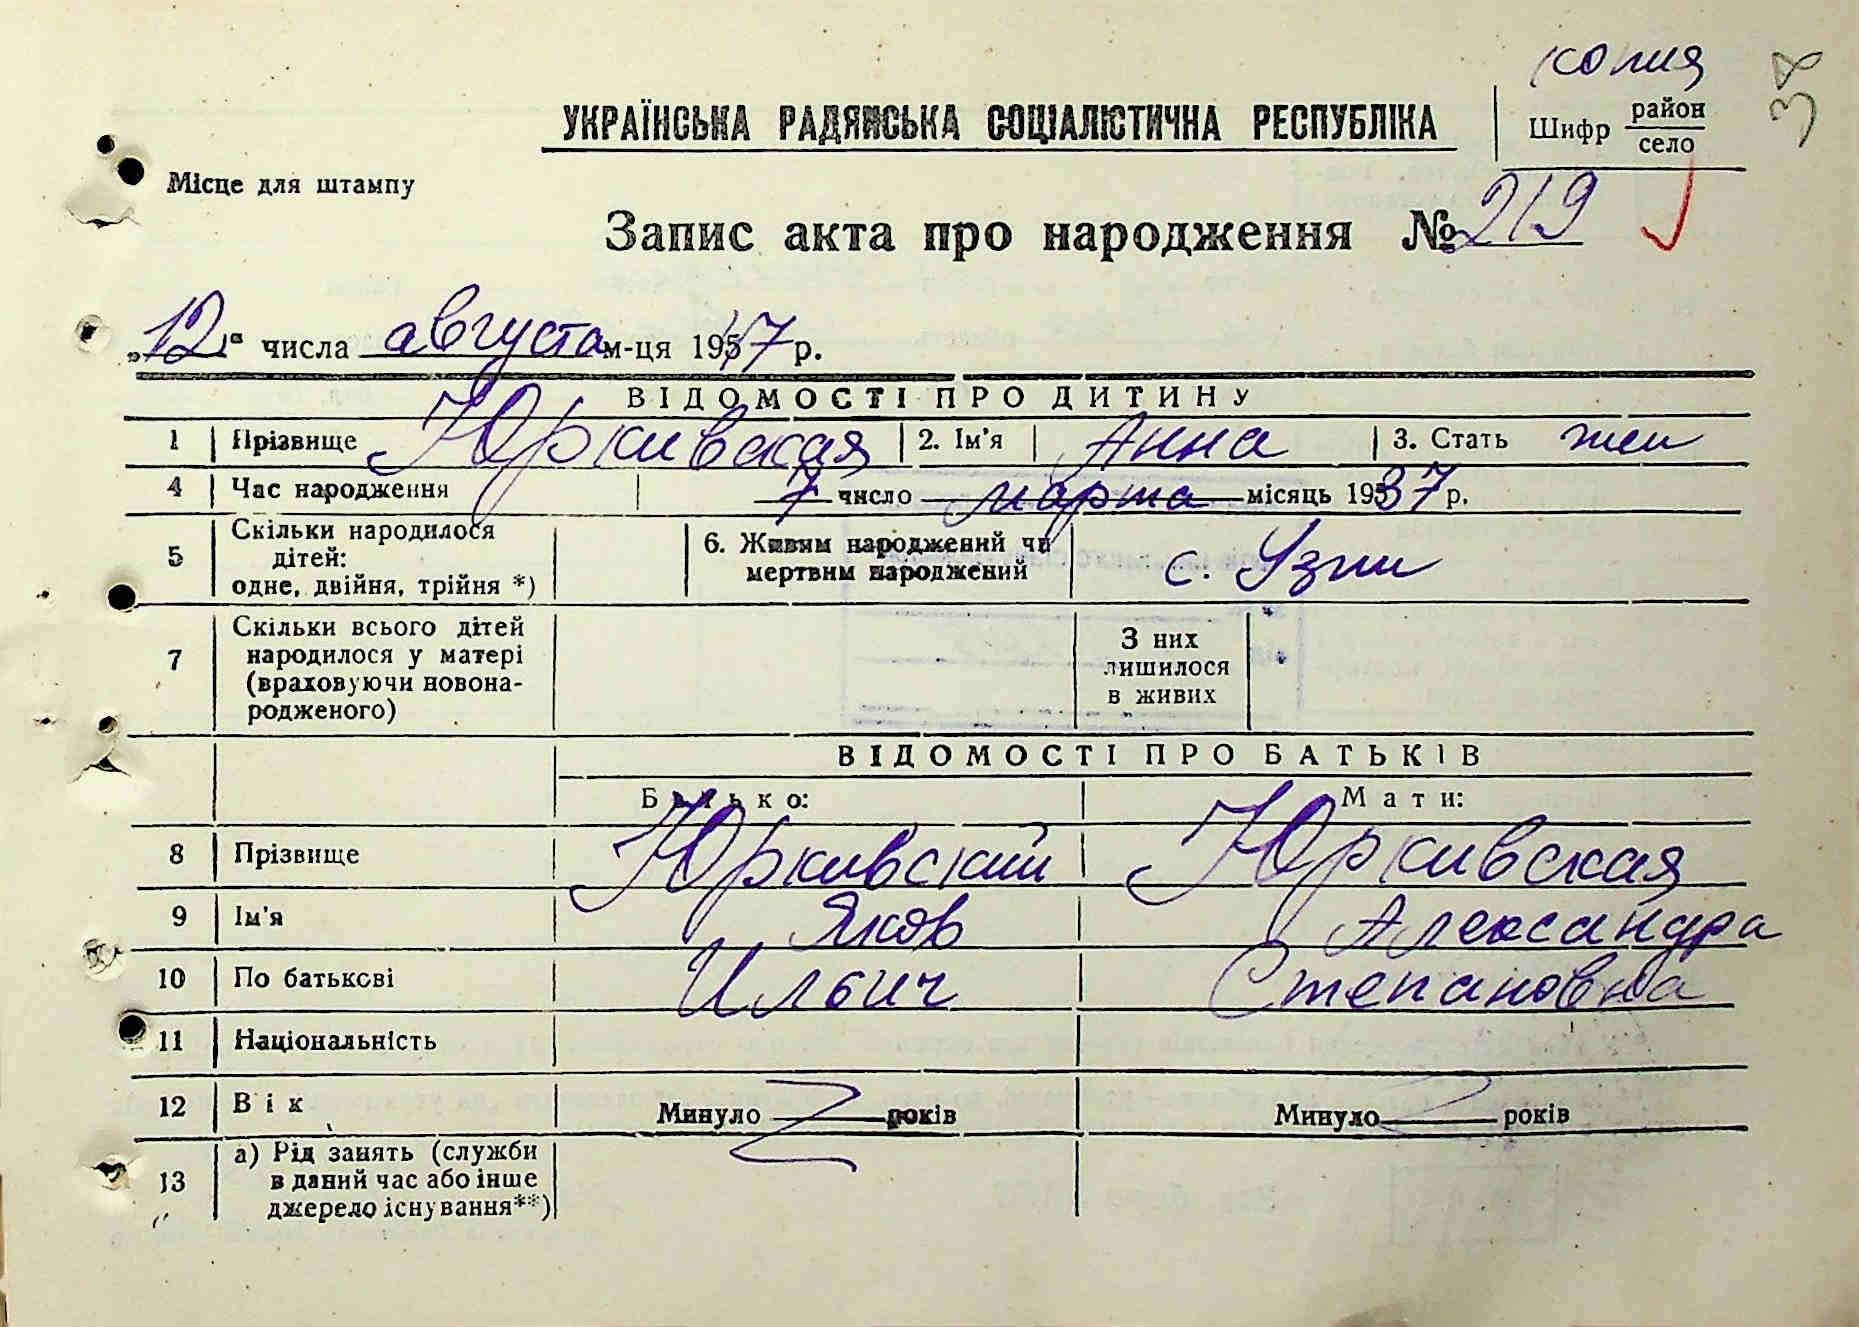 копия
38
УКРАЇНСЬКА РАДЯНСЬКА СОЦІАЛІСТИЧНА РЕСПУБЛІКА
Шифр район
село
Місце для штампу
Запис акта про народження № 219
„12" числа августа м-ця 1957 р.
ВІДОМОСТІ ПРО ДИТИНУ
1 Прізвище Юркивская 2. Ім'я Анна 3. Стать жен
4 Час народження 7 число марта місяць 1937 р.
5 Скільки народилося дітей: одне, двійня, трійня *) 6. Живим народжений чи мертвим народжений с. Узин
7 Скільки всього дітей народилося у матері (враховуючи новонародженого) З них лишилося в живих
ВІДОМОСТІ ПРО БАТЬКІВ
Батько: Мати:
8 Прізвище Юркивский Юркивская
9 Ім'я Яков Александра
10 По батькові Ильич Степановна
11 Національність
12 Вік Минуло років Минуло років
13 а) Рід занять (служби в даний час або інше джерело існування**)